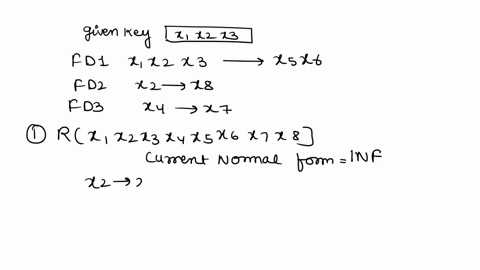 given key x1 x2 x3
FD1 x1 x2 x3 → x5x6
FD2 x2 → x8
FD3 x4 → x7
① R(x1 x2x3 x4 x5x6 x7 x8]
Current Normal form = 1NF
x2 →